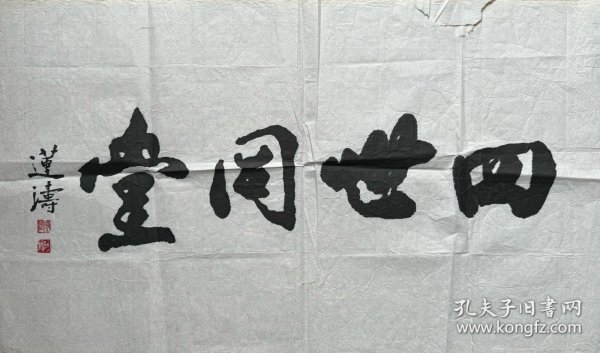 四世同堂
蓮濤
孔夫子旧书网
www.kongfz.com